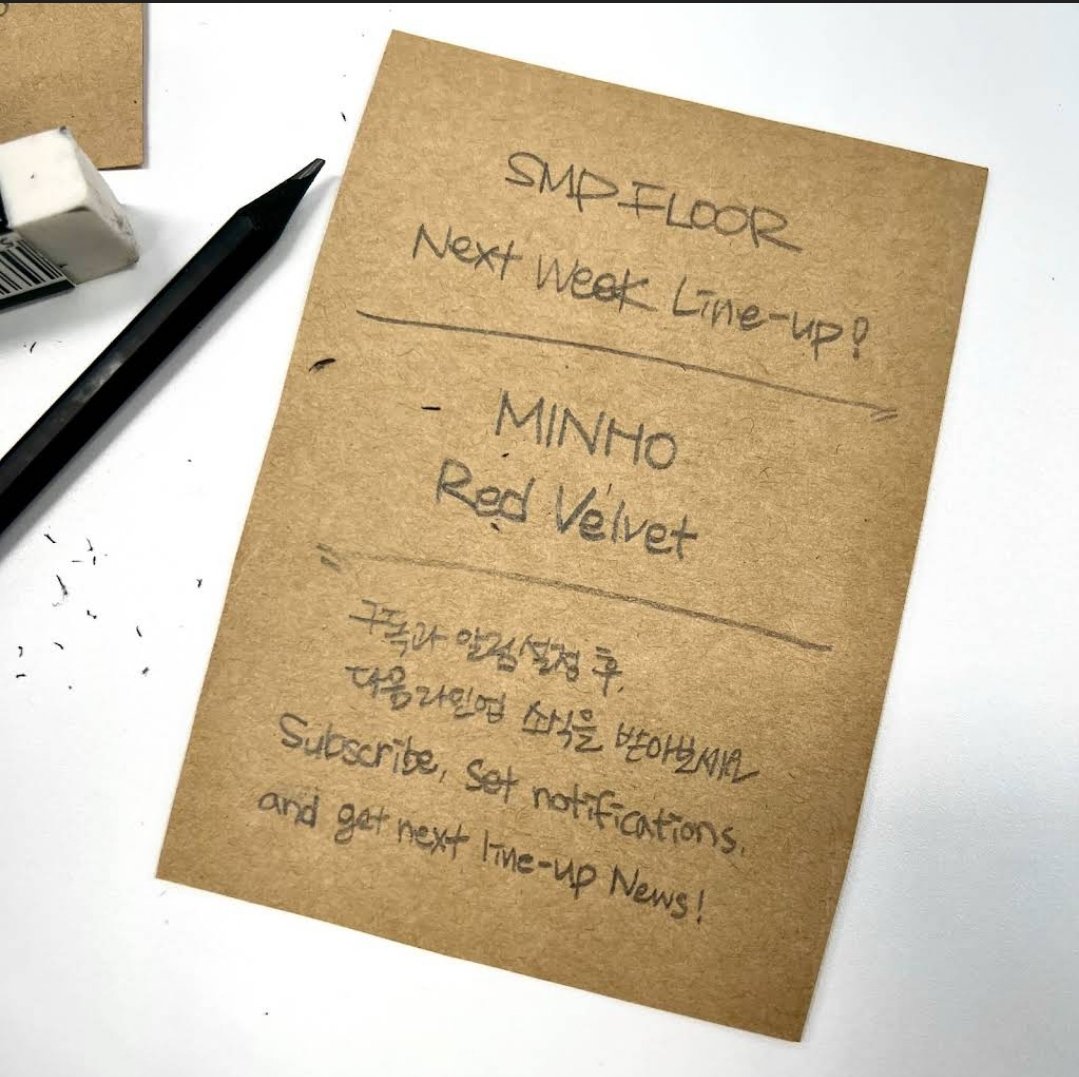 SMP FLOOR
Next Week Line-up!
MINHO
Red Velvet
구독과 알림설정 후,
다음 라인업 소식을 받아보세요
Subscribe, Set notifications,
and get next line-up News!